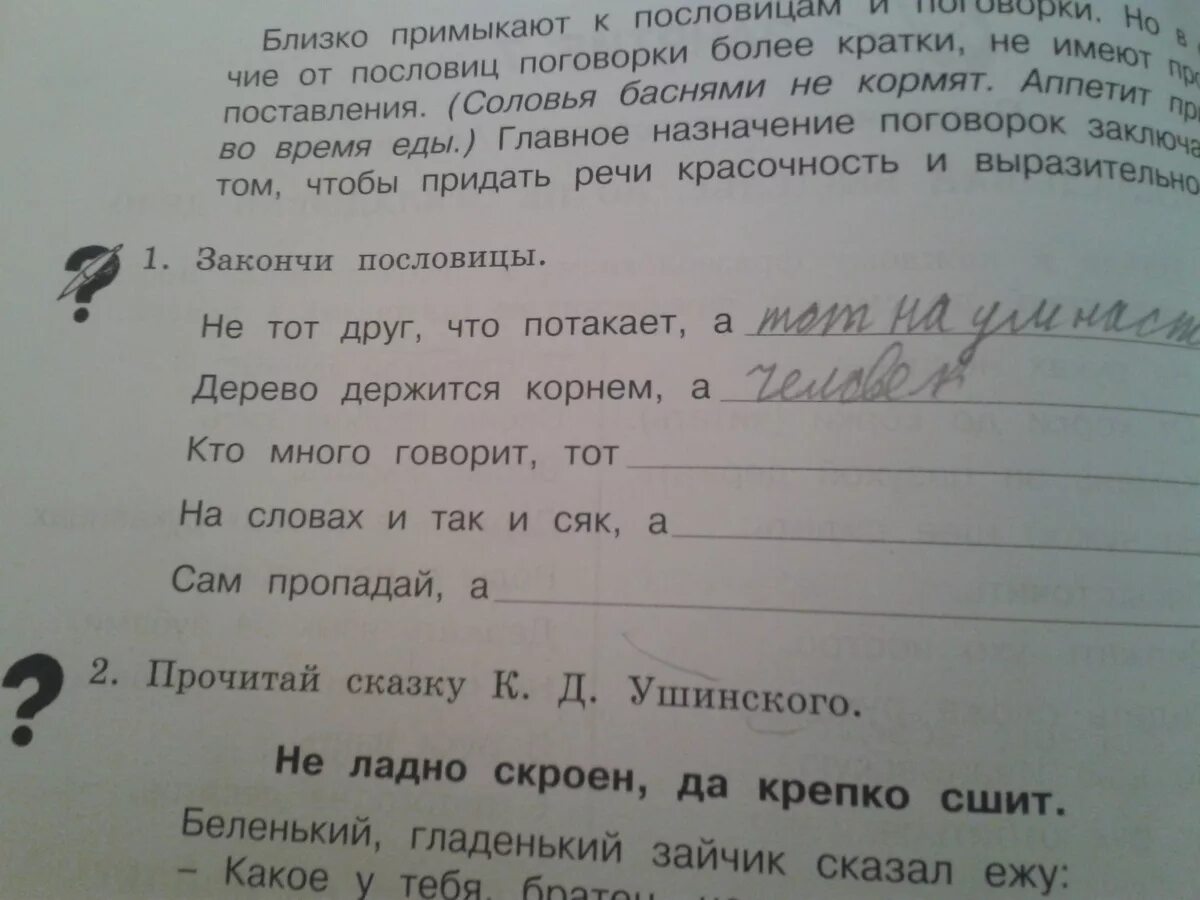 Близко примыкают к пословицам и поговорки. Но в
чие от пословиц поговорки более кратки, не имеют про
поставления. (Соловья баснями не кормят. Аппетит при
во время еды.) Главное назначение поговорок заключа
том, чтобы придать речи красочность и выразительно
1. Закончи пословицы.
Не тот друг, что потакает, а тот на ум наст
Дерево держится корнем, а человек
Кто много говорит, тот
На словах и так и сяк, а
Сам пропадай, а
2. Прочитай сказку К. Д. Ушинского.
Не ладно скроен, да крепко сшит.
Беленький, гладенький зайчик сказал ежу:
– Какое у тебя, братец,